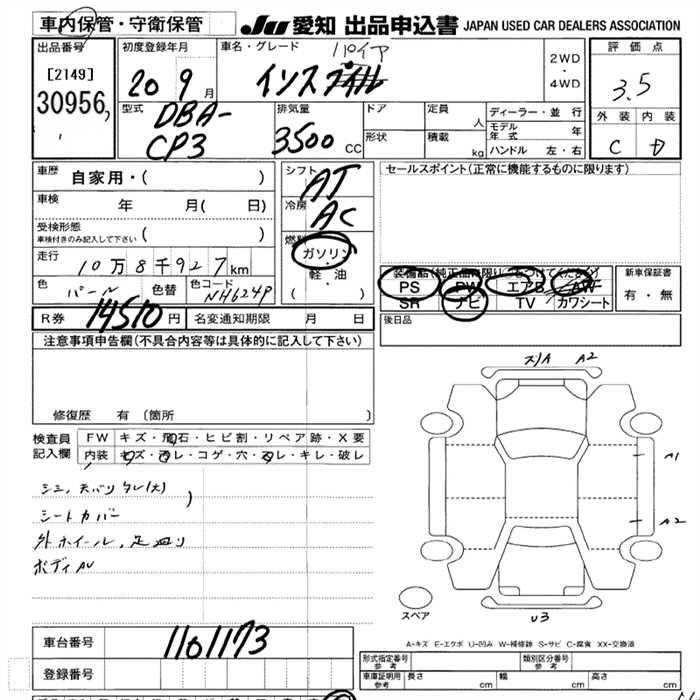 車内保管・守衛保管
JU 愛知 出品申込書 JAPAN USED CAR DEALERS ASSOCIATION
出品番号 初度登録年月 車名・グレード 評価点
[2149]
30956
20 9月
インスパイア
2WD
・
4WD
3.5
型式 DBA-
CP3
排気量 3500 CC
ドア 定員 人
形状 積載 kg
ディーラー・並行
モデル年式 年
ハンドル 左・右
外装 内装
C D
車歴 自家用・( )
車検 年 月( 日)
受検形態 ( )
車検付きのみ記入して下さい
走行 10万8千927km
色 パール 色替 色コード NH624P
シフト AT
冷房 AC
燃料 ガソリン
・
軽油
( )
セールスポイント(正常に機能するものに限ります)
装備品(純正品に限り○をつけてください) 新車保証書
PS PW エアB AW
SR ナビ TV カワシート
有・無
R券 14510円 名変通知期限 月 日
後日品
注意事項申告欄(不具合内容等は具体的に記入して下さい)
修復歴 有(箇所 )
検査員記入欄
FW キズ・飛石・ヒビ割・リペア跡・X要
内装 キズ・コゲ・穴・キレ・破レ
シミ、天バリタレ(大)
シートカバー
外ホイール、足廻り
ボディAU
A2
A1
A2
U3
スペア
A-キズ E-エクボ U-凹み W-補修跡 S-サビ C-腐食 XX-交換済
車台番号 1101173
登録番号
形式指定番号 参考 類別区分番号 参考
車庫証明用 参考 長さ cm 幅 cm 高さ cm